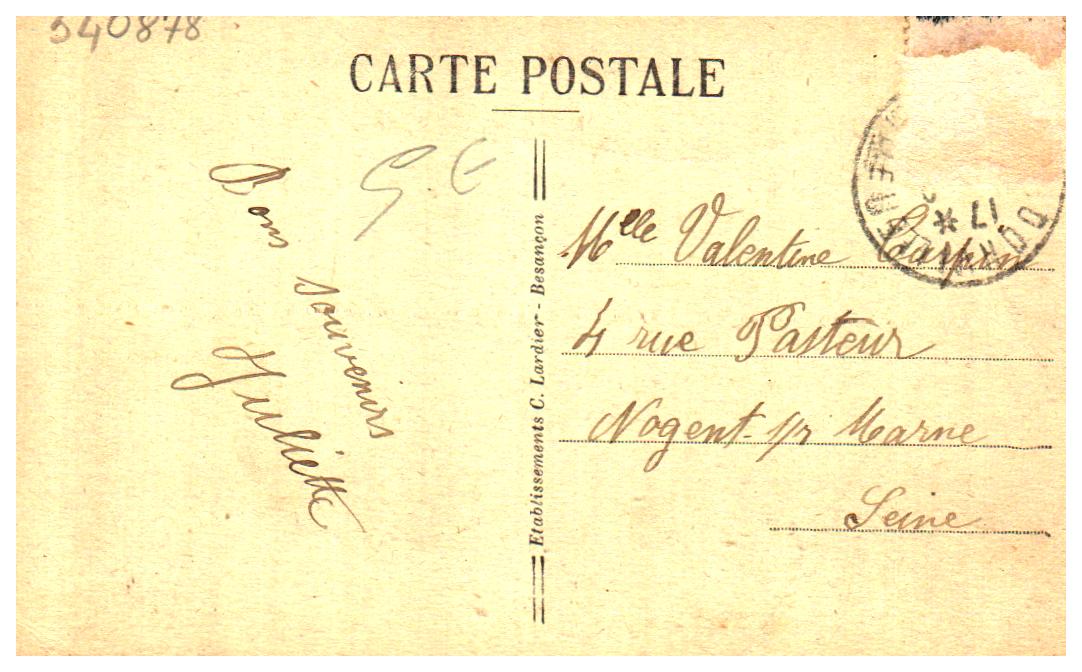 540878
CARTE POSTALE
G. E
Bons
souvenirs
Juliette
Etablissements C. Lardier - Besançon
17 *
Melle Valentine
4 rue Pasteur
Nogent s/s Marne
Seine